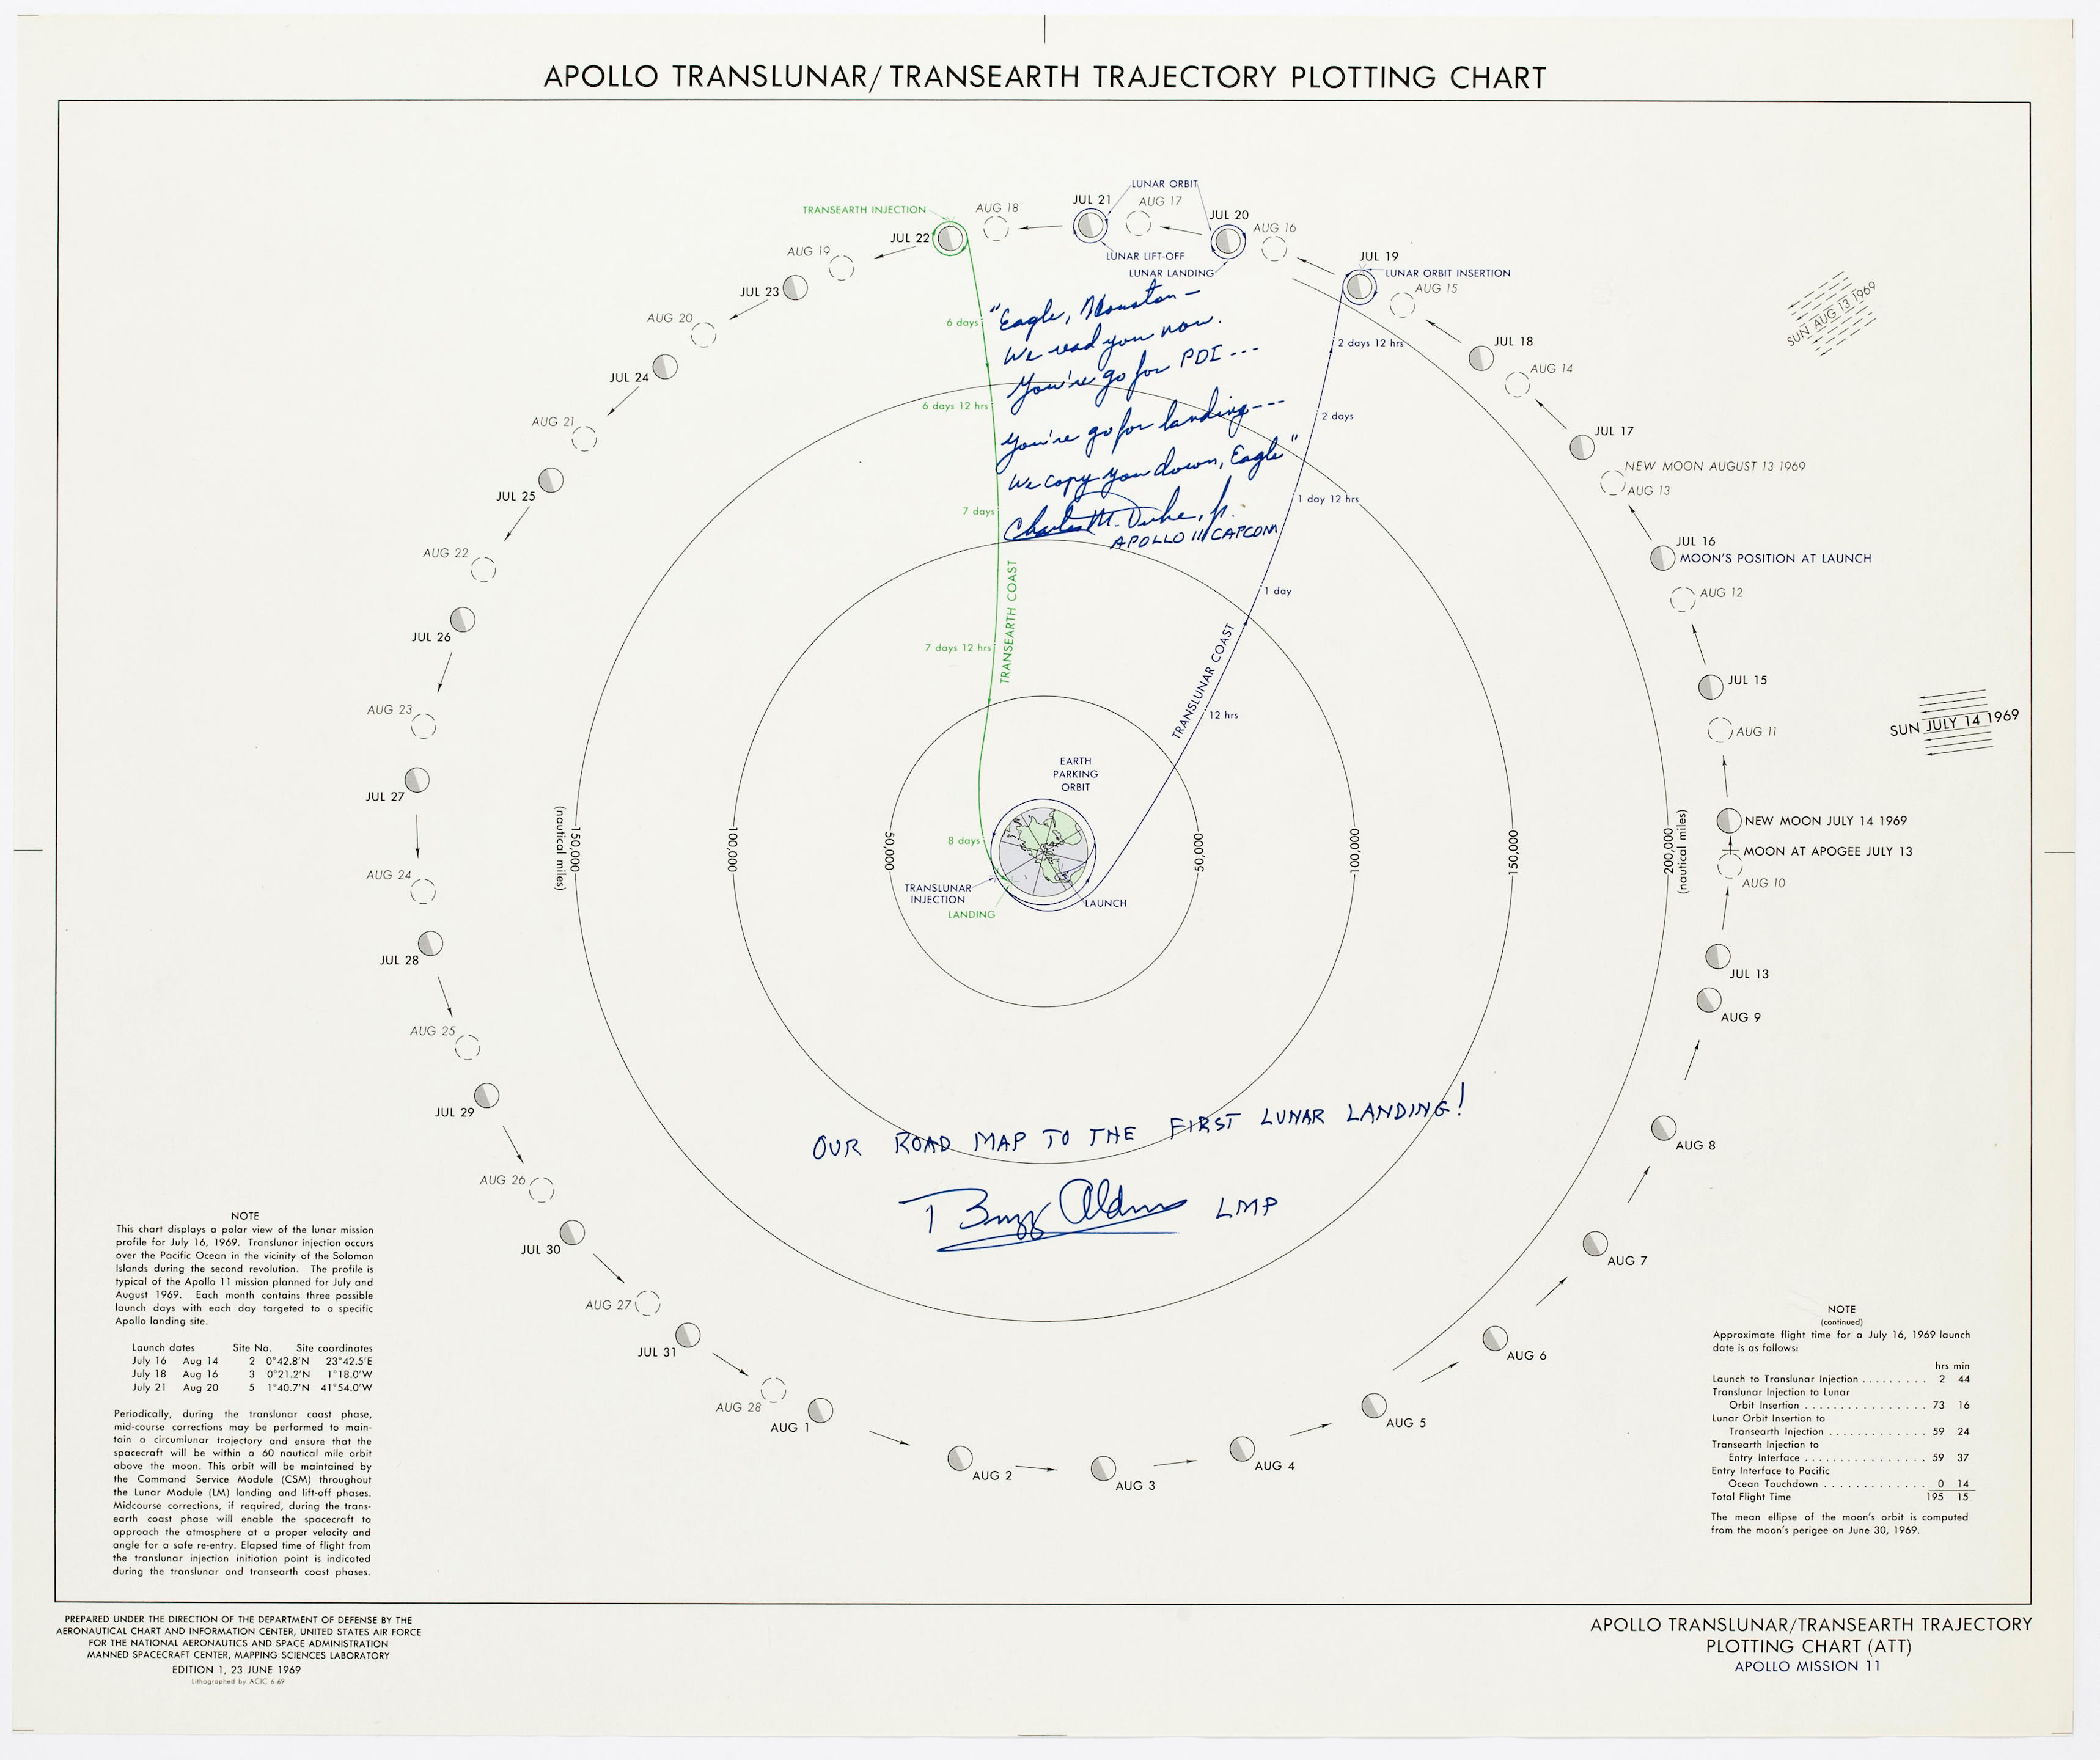 APOLLO TRANSLUNAR/TRANSEARTH TRAJECTORY PLOTTING CHART
LUNAR ORBIT
JUL 21
AUG 17
AUG 18
TRANSEARTH INJECTION
JUL 22
JUL 20
AUG 16
LUNAR LIFT-OFF
LUNAR LANDING
JUL 19
LUNAR ORBIT INSERTION
AUG 15
AUG 19
JUL 23
AUG 20
JUL 24
AUG 21
JUL 25
AUG 22
JUL 26
AUG 23
JUL 27
AUG 24
JUL 28
AUG 25
JUL 29
AUG 26
JUL 30
AUG 27
JUL 31
AUG 28
AUG 1
AUG 2
AUG 3
AUG 4
AUG 5
AUG 6
AUG 7
AUG 8
AUG 9
JUL 13
AUG 10
MOON AT APOGEE JULY 13
NEW MOON JULY 14 1969
AUG 11
JUL 15
AUG 12
MOON'S POSITION AT LAUNCH
JUL 16
AUG 13
NEW MOON AUGUST 13 1969
JUL 17
AUG 14
JUL 18
SUN AUG 13 1969
SUN JULY 14 1969
6 days
6 days 12 hrs
7 days
7 days 12 hrs
8 days
TRANSEARTH COAST
2 days 12 hrs
2 days
1 day 12 hrs
1 day
12 hrs
TRANSLUNAR COAST
"Eagle, Houston —
We read you now.
You're go for PDI ---
You're go for landing ---
We copy you down, Eagle"
Charles M. Duke, Jr.
APOLLO 11 CAPCOM
EARTH
PARKING
ORBIT
TRANSLUNAR
INJECTION
LANDING
LAUNCH
(nautical miles)
150,000
100,000
50,000
50,000
100,000
150,000
200,000
(nautical miles)
OUR ROAD MAP TO THE FIRST LUNAR LANDING!
Buzz Aldrin LMP
NOTE
This chart displays a polar view of the lunar mission
profile for July 16, 1969. Translunar injection occurs
over the Pacific Ocean in the vicinity of the Solomon
Islands during the second revolution. The profile is
typical of the Apollo 11 mission planned for July and
August 1969. Each month contains three possible
launch days with each day targeted to a specific
Apollo landing site.
Launch dates Site No. Site coordinates
July 16 Aug 14 2 0°42.8'N 23°42.5'E
July 18 Aug 16 3 0°21.2'N 1°18.0'W
July 21 Aug 20 5 1°40.7'N 41°54.0'W
Periodically, during the translunar coast phase,
mid-course corrections may be performed to main-
tain a circumlunar trajectory and ensure that the
spacecraft will be within a 60 nautical mile orbit
above the moon. This orbit will be maintained by
the Command Service Module (CSM) throughout
the Lunar Module (LM) landing and lift-off phases.
Midcourse corrections, if required, during the trans-
earth coast phase will enable the spacecraft to
approach the atmosphere at a proper velocity and
angle for a safe re-entry. Elapsed time of flight from
the translunar injection initiation point is indicated
during the translunar and transearth coast phases.
NOTE
(continued)
Approximate flight time for a July 16, 1969 launch
date is as follows:
hrs min
Launch to Translunar Injection . . . . . . . . . 2 44
Translunar Injection to Lunar
Orbit Insertion . . . . . . . . . . . . . . . . 73 16
Lunar Orbit Insertion to
Transearth Injection . . . . . . . . . . . . . 59 24
Transearth Injection to
Entry Interface . . . . . . . . . . . . . . . . 59 37
Entry Interface to Pacific
Ocean Touchdown . . . . . . . . . . . . . 0 14
Total Flight Time 195 15
The mean ellipse of the moon's orbit is computed
from the moon's perigee on June 30, 1969.
PREPARED UNDER THE DIRECTION OF THE DEPARTMENT OF DEFENSE BY THE
AERONAUTICAL CHART AND INFORMATION CENTER, UNITED STATES AIR FORCE
FOR THE NATIONAL AERONAUTICS AND SPACE ADMINISTRATION
MANNED SPACECRAFT CENTER, MAPPING SCIENCES LABORATORY
EDITION 1, 23 JUNE 1969
Lithographed by ACIC 6-69
APOLLO TRANSLUNAR/TRANSEARTH TRAJECTORY
PLOTTING CHART (ATT)
APOLLO MISSION 11